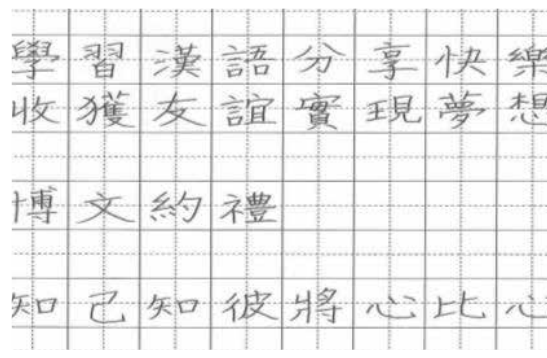 學習漢語分享快樂
收獲友誼實現夢想
博文約禮
知己知彼將心比心